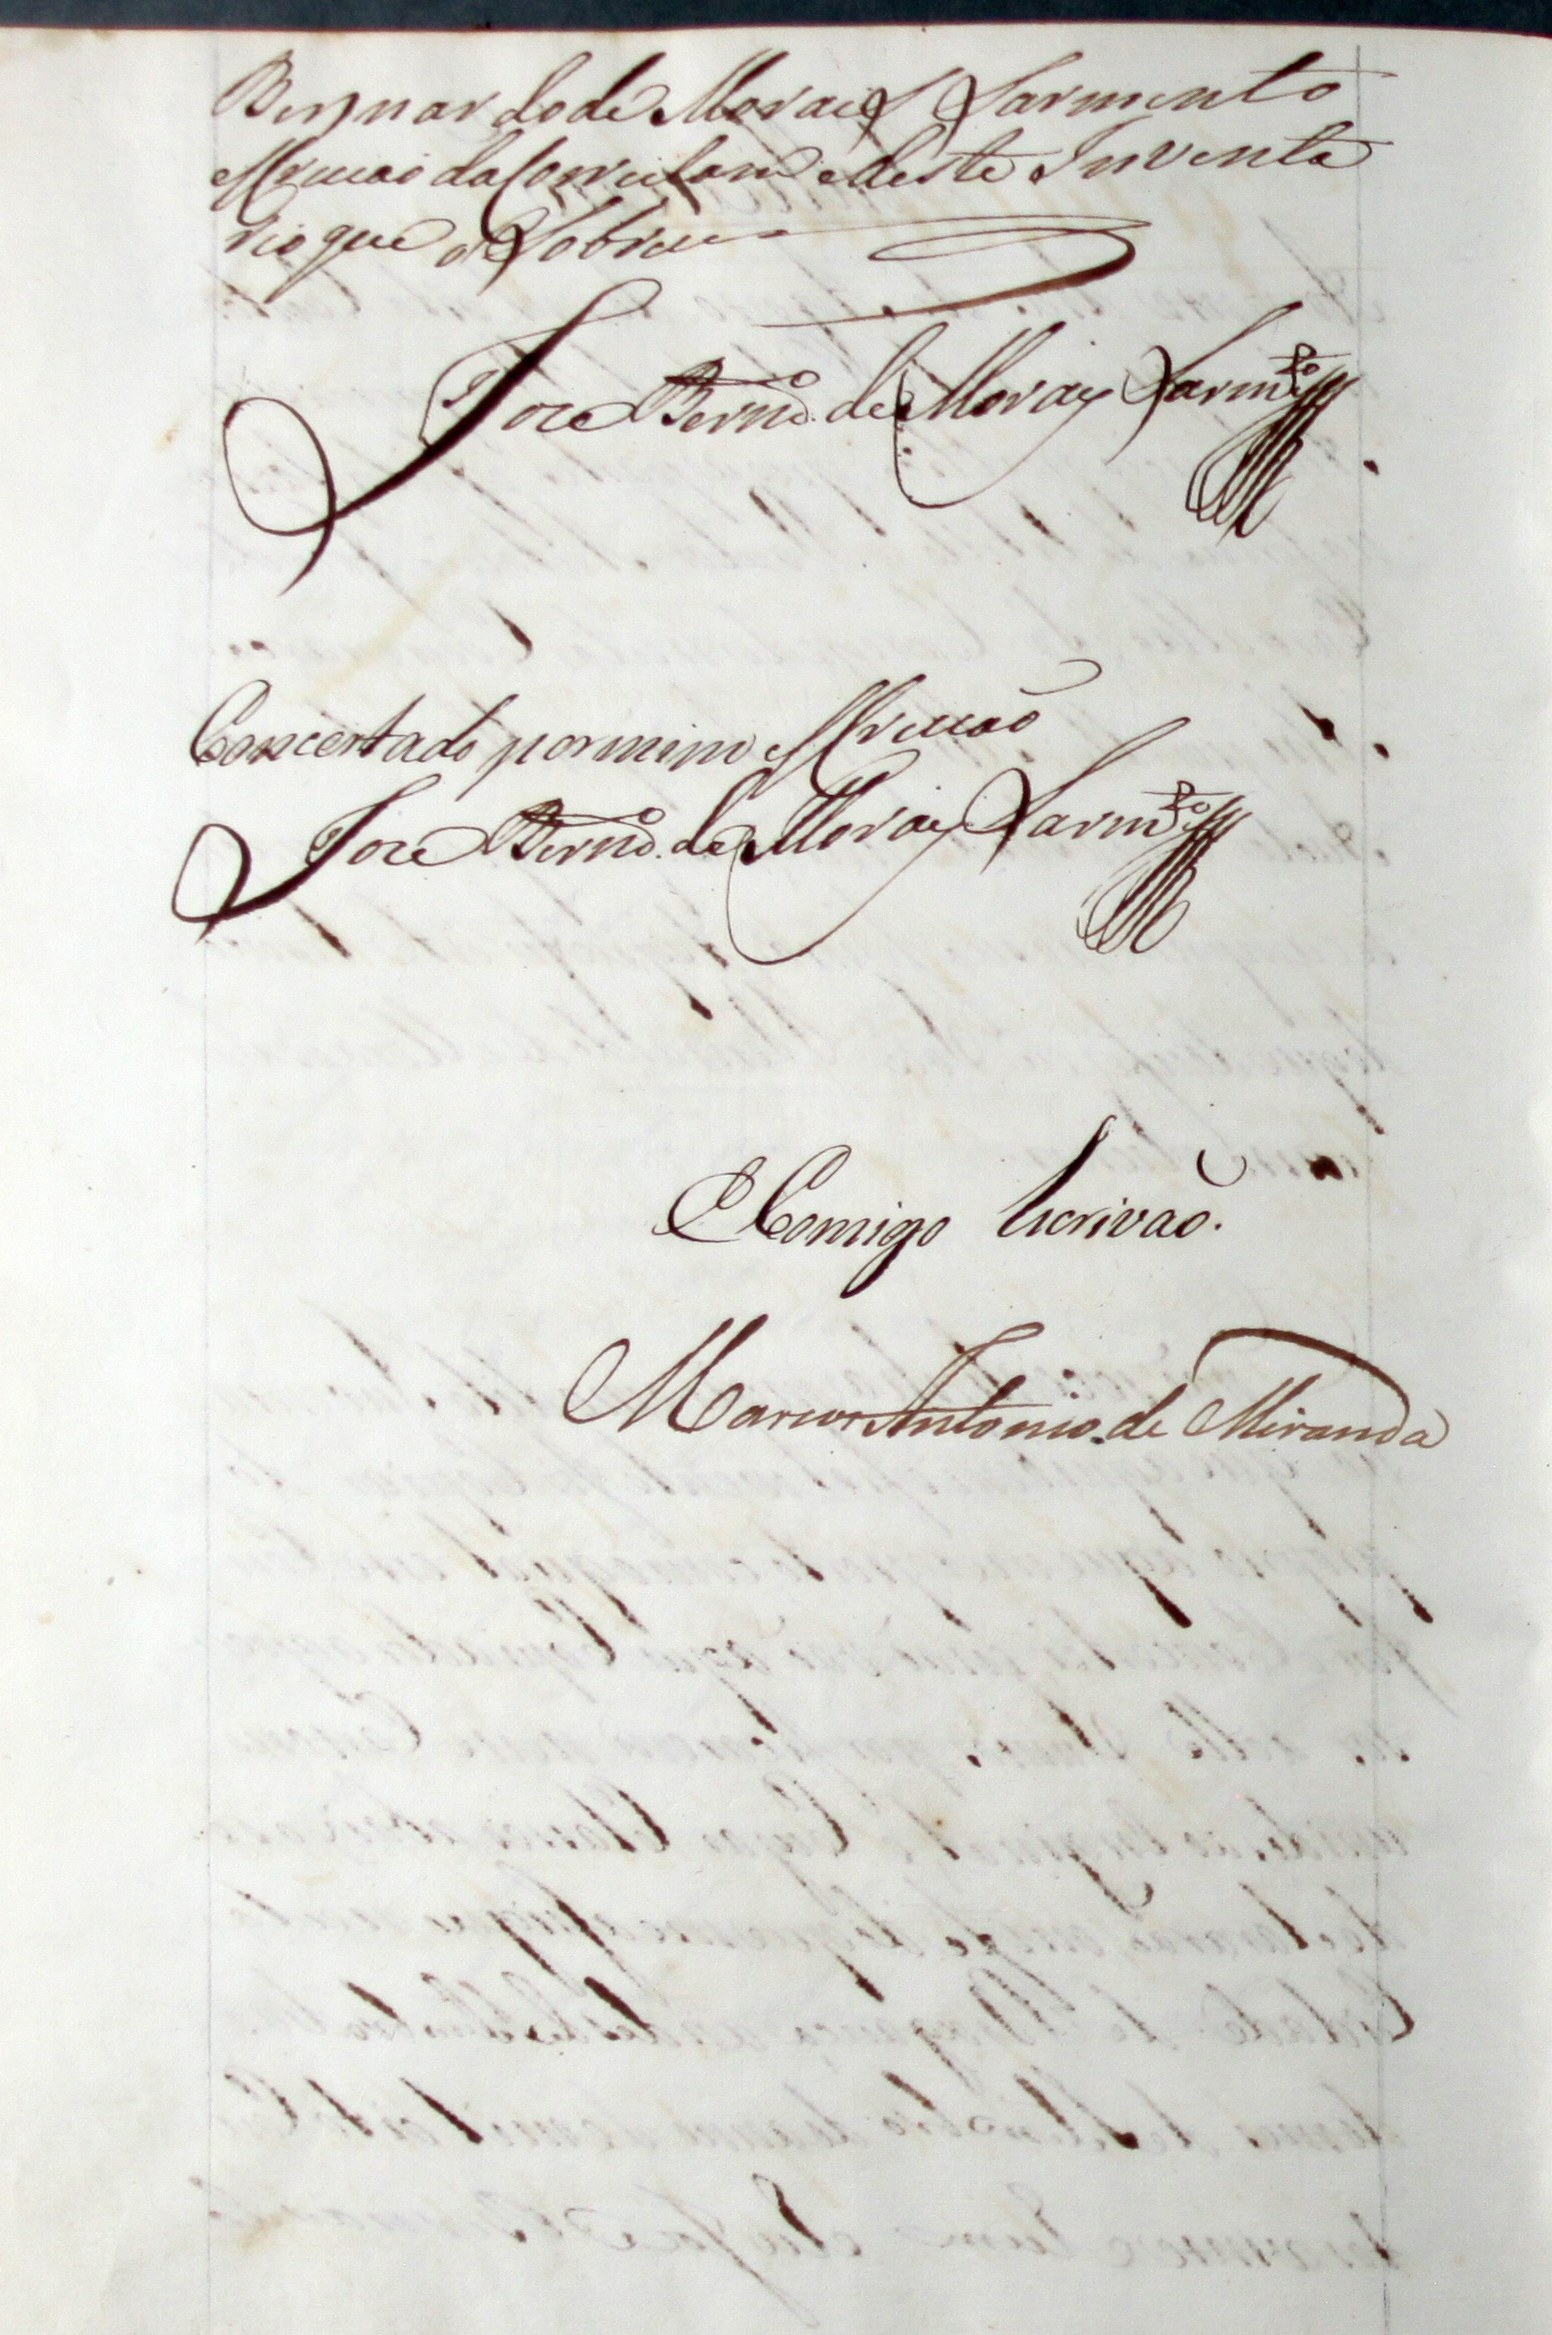 Bernardo de Moraes Sarmento
Escrivaõ da Correiçam e deste Inventa
rio que o Sobscrevi
Joze Bern.do de Moraes Sarm.to
Concertado por mim Escrivaõ
Joze Bern.do de Moraes Sarm.to
E Comigo Escrivaõ.
Marcos Antonio de Miranda